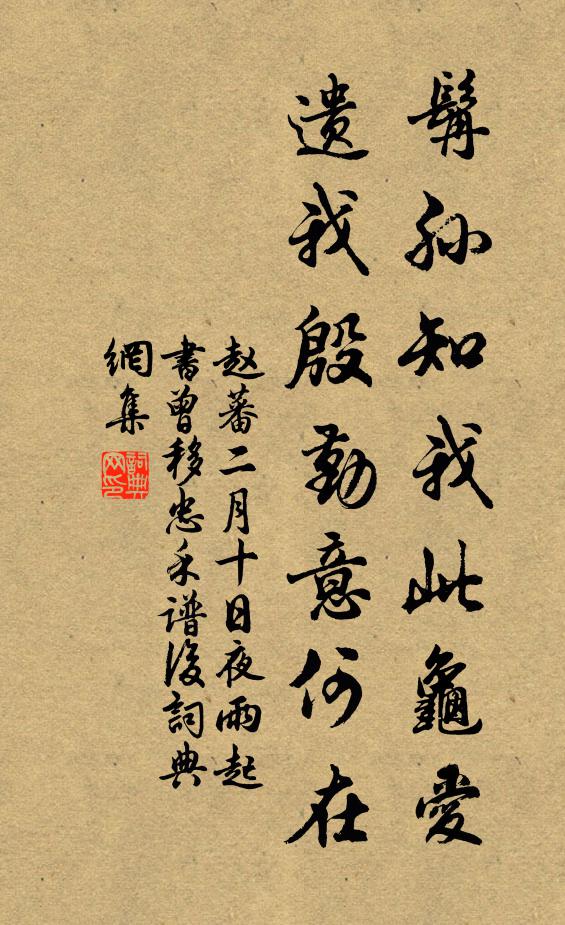 髯孙知我此龜愛
遗我殷勤意何在
赵蕃二月十日夜雨起
書曾移忠禾谱後詞典
網集
詞典网印